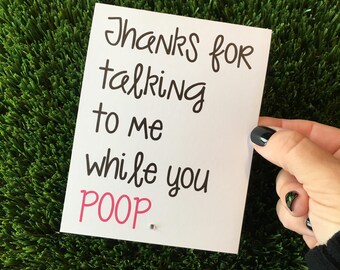 Thanks for
talking
to me
while you
POOP.